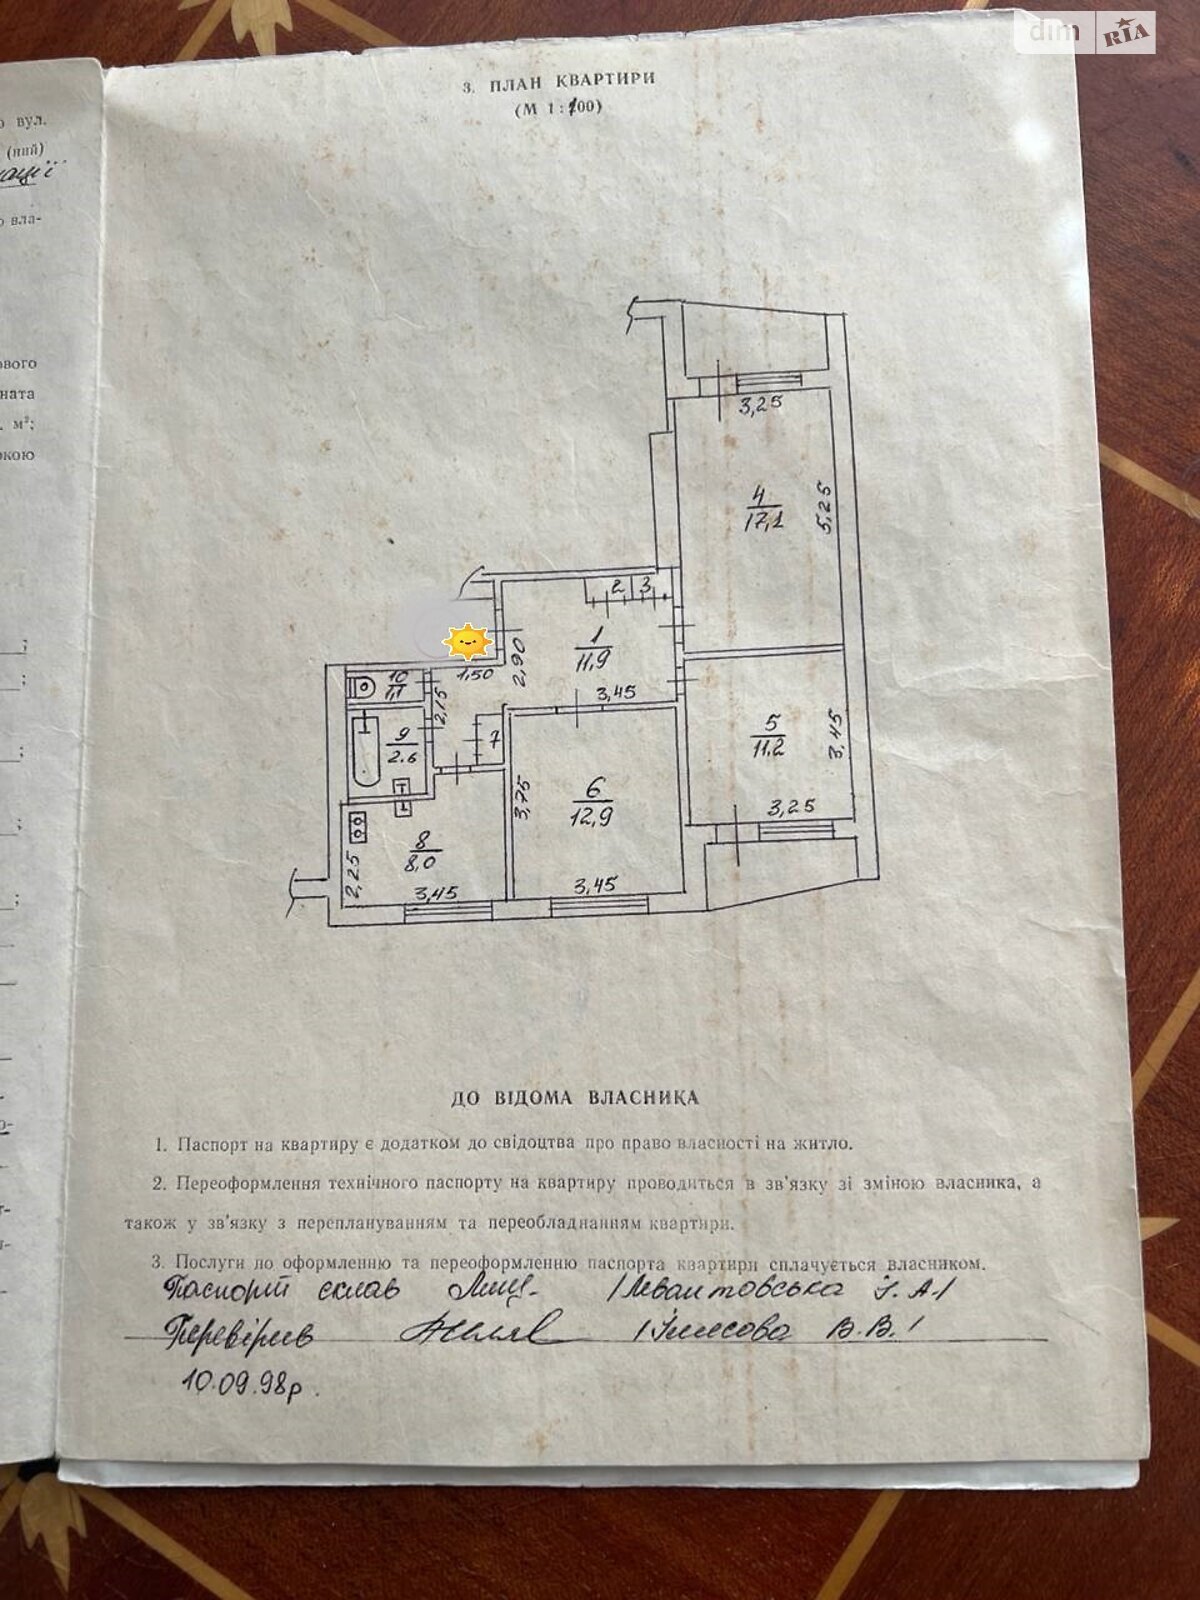 dim RIA
о вул.
(ний)
ації
о вла-
ового
ната
. м²;
окою
3. ПЛАН КВАРТИРИ
(М 1:100)
3,25
4
17,1
5,25
2 3
1
11,9
2,90
3,45
1,50
10
1,1
2,15
9
2.6
7
5
11.2
3,45
3,25
6
12,9
3,75
3,45
8
8,0
2,25
3,45
ДО ВІДОМА ВЛАСНИКА
1. Паспорт на квартиру є додатком до свідоцтва про право власності на житло.
2. Переоформлення технічного паспорту на квартиру проводиться в зв'язку зі зміною власника, а
також у зв'язку з переплануванням та переобладнанням квартири.
3. Послуги по оформленню та переоформленню паспорта квартири сплачується власником.
Паспорт склав /Левантовська І. А/
Перевірив В.В./
10.09.98р.